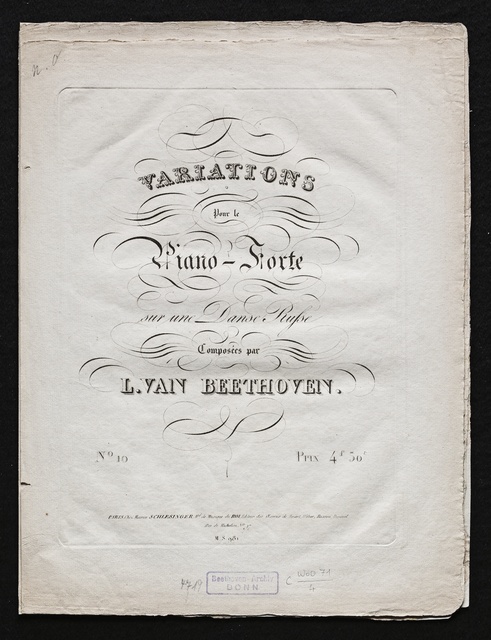 VARIATIONS
Pour le
Piano-Forte
sur une Danse Russe
Composées par
L. VAN BEETHOVEN.
No 10
Prix 4f 50c
PARIS, Chez Maurice SCHLESINGER, Md de Musique du ROI,
Rue de Richelieu, No
M.S.
Beethoven-Archiv
BONN
C WoO 71
4